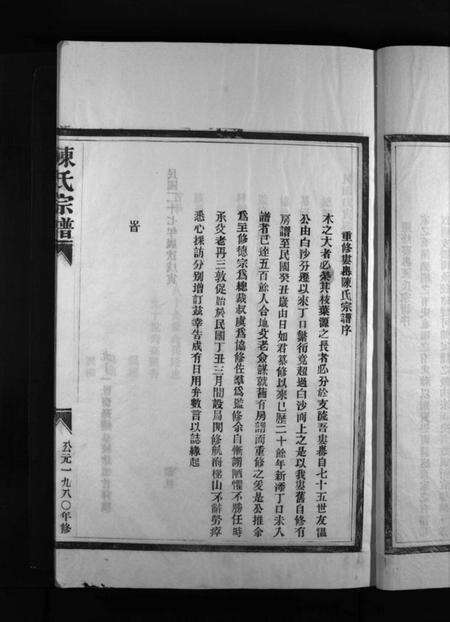 重修婁嶴陳氏宗譜序
木之大者必繁其枝葉源之長者必分於支流吾婁嶴自七十五世友溫
公由白沙分遷以來丁口繁衍竟超過白沙而上之是以我婁舊自修有
房譜至民國癸丑歲由日如君纂修以來已歷二十餘年新添丁口未入
譜者已達五百餘人合地父老僉謀就舊有房譜而重修之爰是公推余
爲主修德宗爲總裁叔虞爲協修佐羣爲監修余自慚謭陋懼不勝任時
承父老再三敦促始於民國丁丑三月間設局開修航海梯山不辭勞瘁
悉心採訪分別增訂茲幸告成有日用弁數言以誌緣起
旹
民國二十七年歲次戊寅
陳氏宗譜
公元一九八〇年修